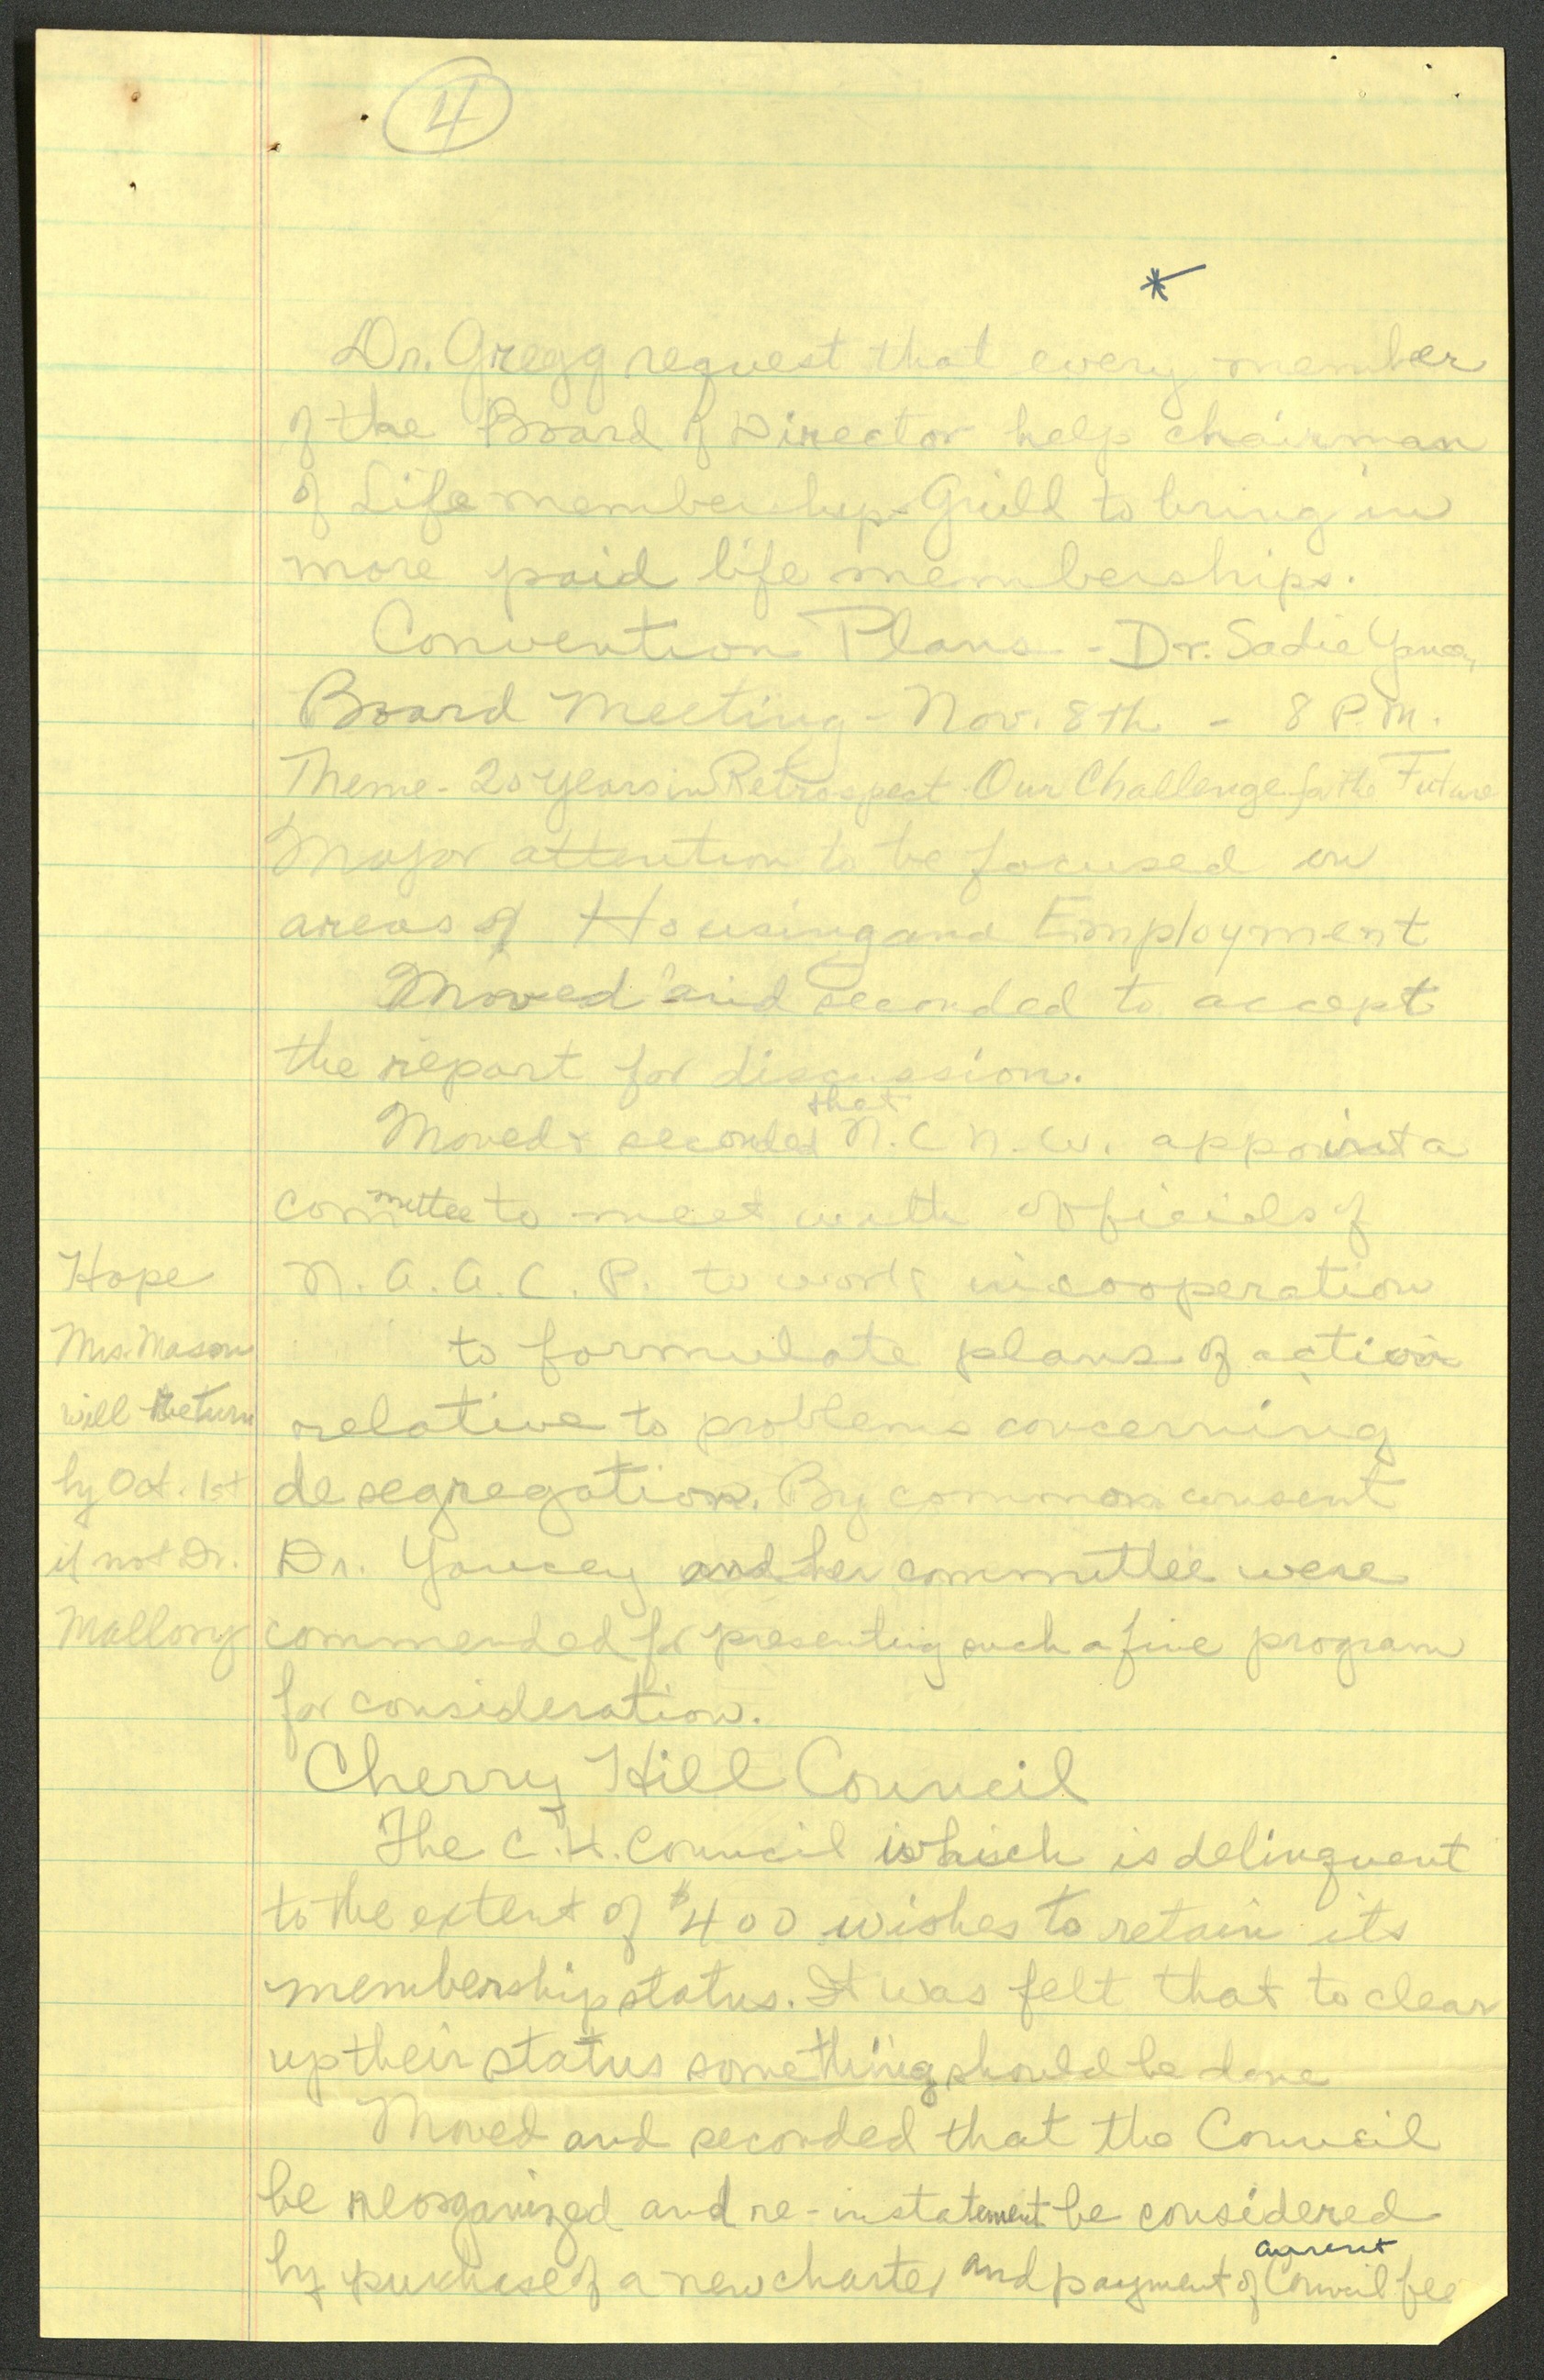 4
*
Dr. Gregg request that every member
of the Board of Director help chairman
of Life membership-Guild to bring in
more paid life memberships.
Convention Plans - Dr. Sadie Yancey
Board Meeting - Nov. 8th - 8 P.M.
Theme - 20 years in Retrospect - Our Challenge for the Future
Major attention to be focused on
areas of Housing and Employment
Moved and seconded to accept
the report for discussion.
Moved & seconded that N.C.N.W. appoint a
committee to meet with officials of
N.A.A.C.P. to work in cooperation
to formulate plans of action
relative to problems concerning
desegregation. By common consent
Dr. Yancey and her committee were
commended for presenting such a fine program
for consideration.
Hope
Mrs. Mason
will return
by Oct. 1st
if not Dr.
Mallory
Cherry Hill Council
The C.H. Council which is delinquent
to the extent of $400 wishes to retain its
membership status. It was felt that to clear
up their status something should be done
Moved and seconded that the Council
be reorganized and re-instatement be considered
by purchase of a new charter and payment of current Council fee